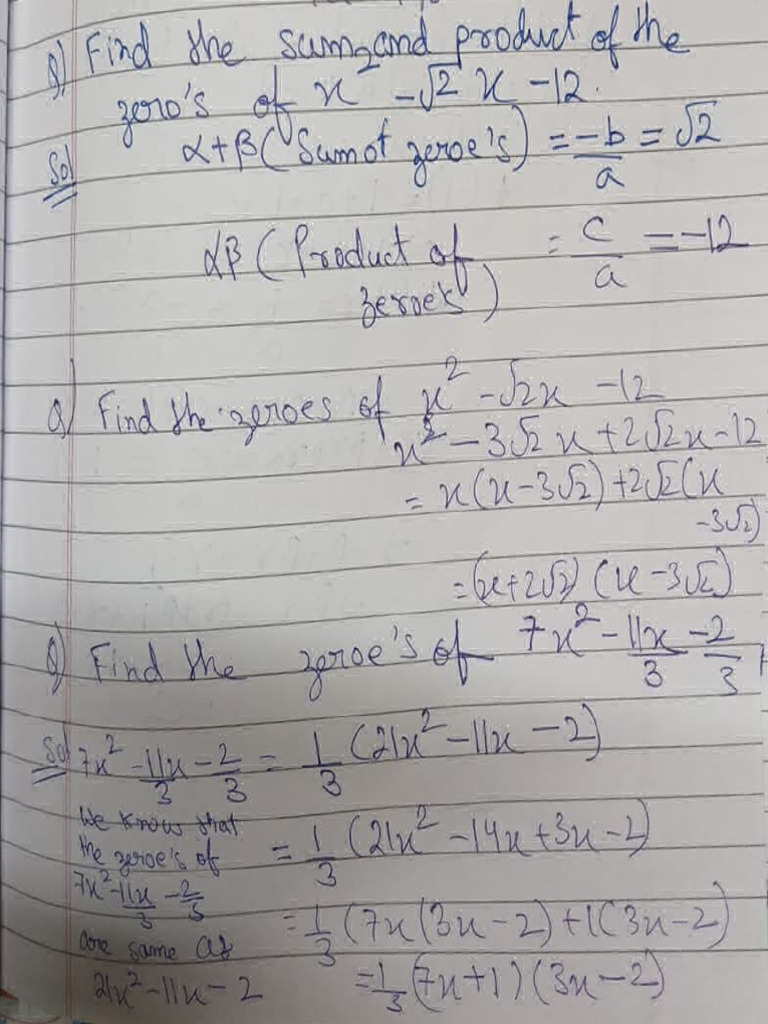 Q) Find the sum and product of the
zero's of x² - √2 x - 12.
Sol α+β (Sum of zeroe's) = -b/a = √2
αβ (Product of zeroes) = c/a = -12
Q) Find the zeroes of x² - √2x - 12
x² - 3√2 x + 2√2x - 12
= x(x - 3√2) + 2√2(x
- 3√2)
= (x+2√2) (x - 3√2)
Q) Find the zeroe's of 7x² - 11x/3 - 2/3
Sol 7x² - 11x/3 - 2/3 = 1/3 (21x² - 11x - 2)
We know that
the zeroe's of
7x² - 11x/3 - 2/3
are same as
21x² - 11x - 2
= 1/3 (21x² - 14x + 3x - 2)
= 1/3 (7x(3x - 2) + 1(3x - 2)
= 1/3 (7x+1) (3x - 2)